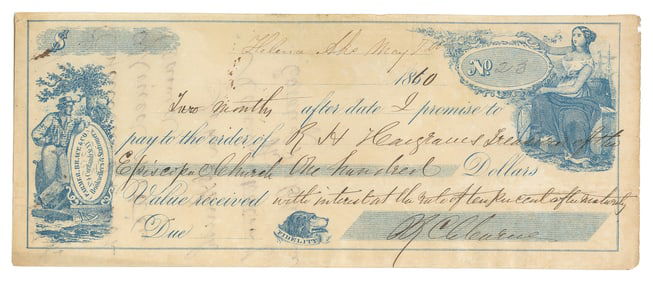 $
Helena Ark May
No 23
1860
Two months after date I promise to
pay to the order of R H Hargraves Treasurer of the
Episcopal Church One hundred Dollars
Value received with interest at the rate of ten per cent after maturity
Due
FIDELITE